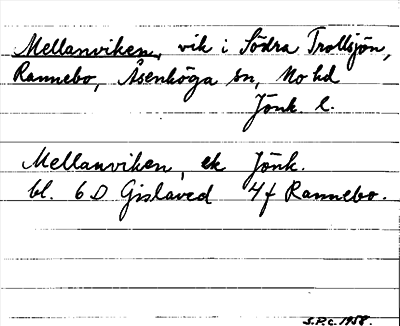 Mellanviken, vik i Södra Trollsjön,
Rannebo, Åsenhöga sn, Mo hd
Jönk. l.
Mellanviken, ek Jönk.
bl. 6 D Gislaved 4f Rannebo.
S.P.C. 1958.